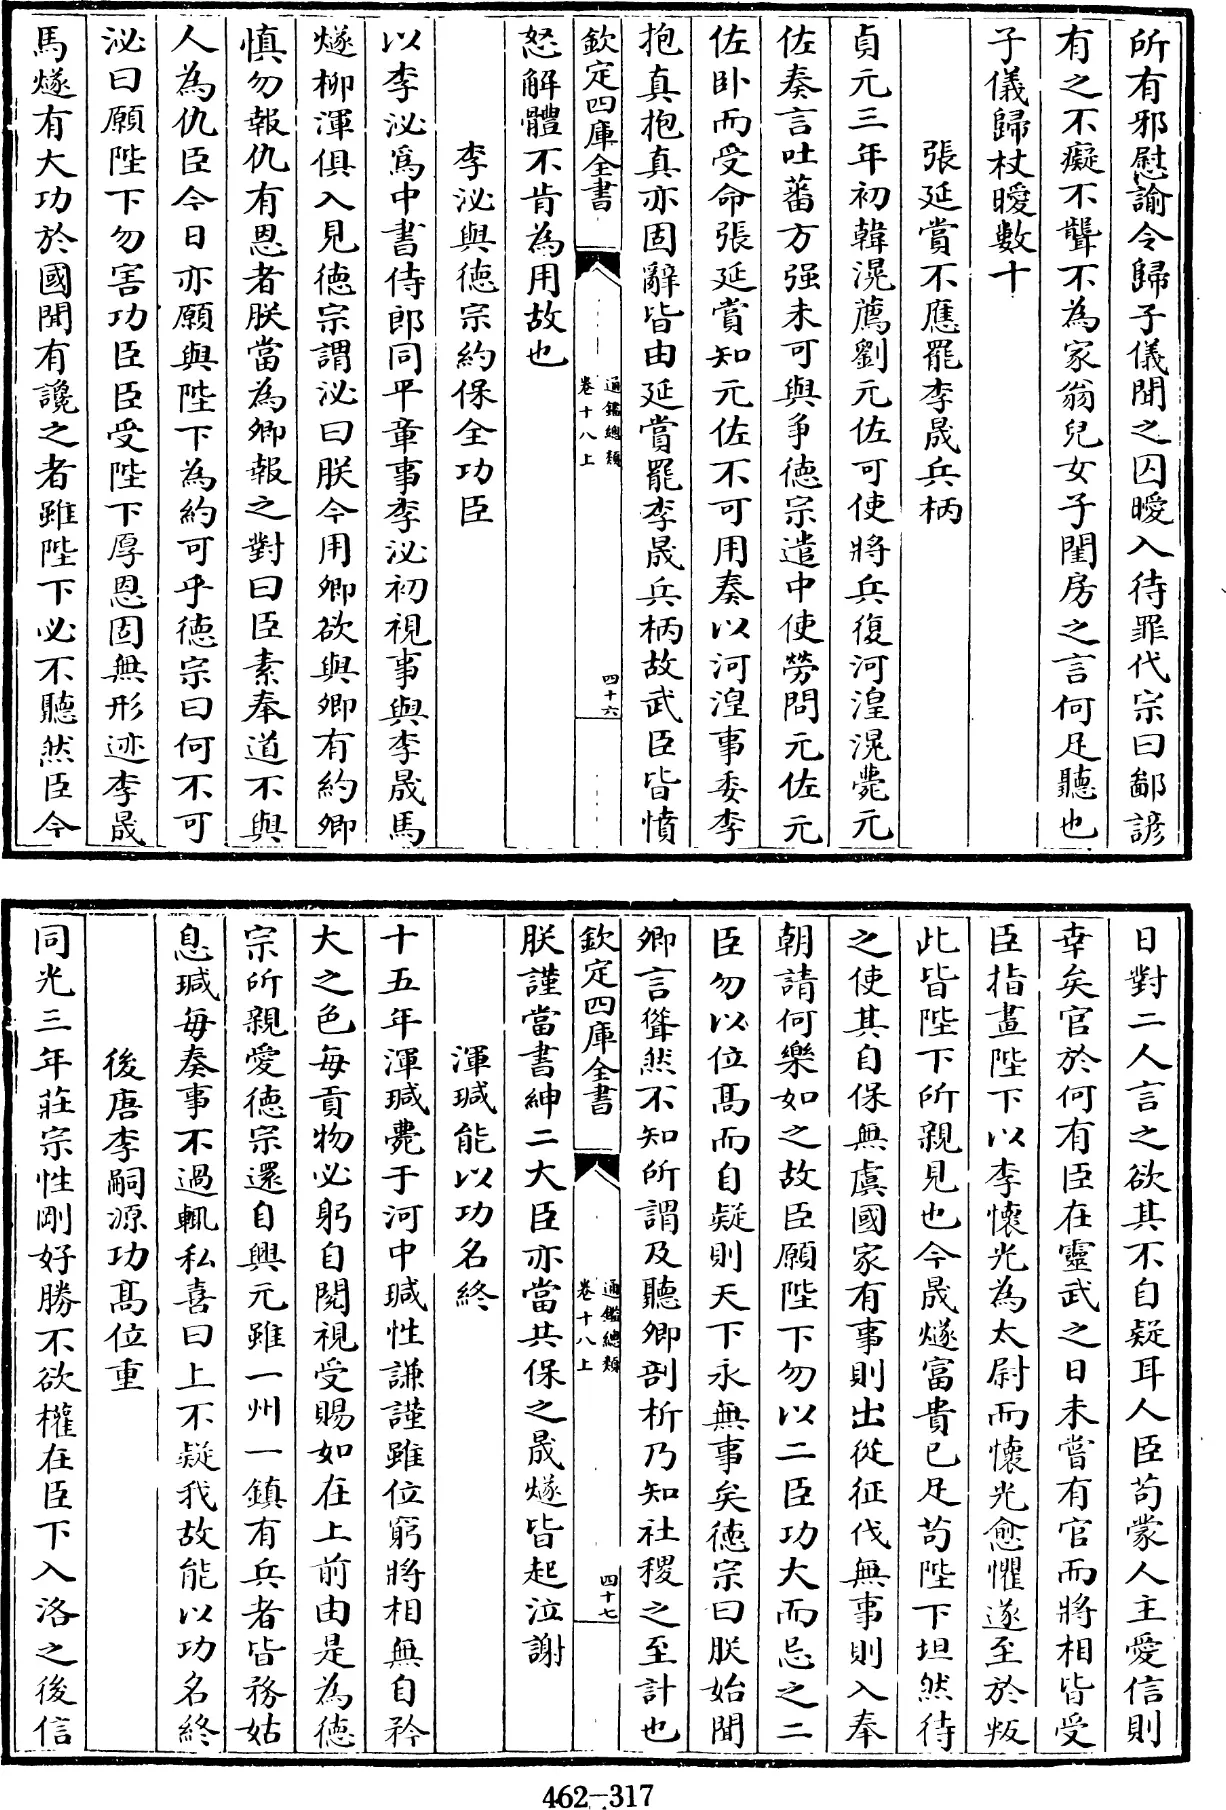 所有邪慰諭令歸子儀聞之囚曖入待罪代宗曰鄙諺
有之不癡不聾不為家翁兒女子閨房之言何足聽也
子儀歸杖曖數十
張延賞不應罷李晟兵柄
貞元三年初韓滉薦劉元佐可使將兵復河湟滉薨元
佐奏言吐蕃方强未可與爭徳宗遣中使勞問元佐元
佐卧而受命張延賞知元佐不可用奏以河湟事委李
抱真抱真亦固辭皆由延賞罷李晟兵柄故武臣皆憤
欽定四庫全書
通鑑總類
卷十八上
四十六
怒解體不肯為用故也
李泌與徳宗約保全功臣
以李泌爲中書侍郎同平章事李泌初視事與李晟馬
燧柳渾俱入見徳宗謂泌曰朕今用卿欲與卿有約卿
慎勿報仇有恩者朕當為卿報之對曰臣素奉道不與
人為仇臣今日亦願與陛下為約可乎徳宗曰何不可
泌曰願陛下勿害功臣臣受陛下厚恩固無形迹李晟
馬燧有大功於國聞有讒之者雖陛下必不聽然臣今
日對二人言之欲其不自疑耳人臣苟蒙人主愛信則
幸矣官於何有臣在靈武之日未嘗有官而將相皆受
臣指畫陛下以李懷光為太尉而懷光愈懼遂至於叛
此皆陛下所親見也今晟燧富貴已足苟陛下坦然待
之使其自保無虞國家有事則出從征伐無事則入奉
朝請何樂如之故臣願陛下勿以二臣功大而忌之二
臣勿以位髙而自疑則天下永無事矣徳宗曰朕始聞
卿言聳然不知所謂及聽卿剖析乃知社稷之至計也
欽定四庫全書
通鑑總類
卷十八上
四十七
朕謹當書紳二大臣亦當共保之晟燧皆起泣謝
渾瑊能以功名終
十五年渾瑊薨于河中瑊性謙謹雖位窮將相無自矜
大之色每貢物必躬自閱視受賜如在上前由是為徳
宗所親愛徳宗還自興元雖一州一鎮有兵者皆務姑
息瑊每奏事不過輒私喜曰上不疑我故能以功名終
後唐李嗣源功髙位重
同光三年莊宗性剛好勝不欲權在臣下入洛之後信
462-317